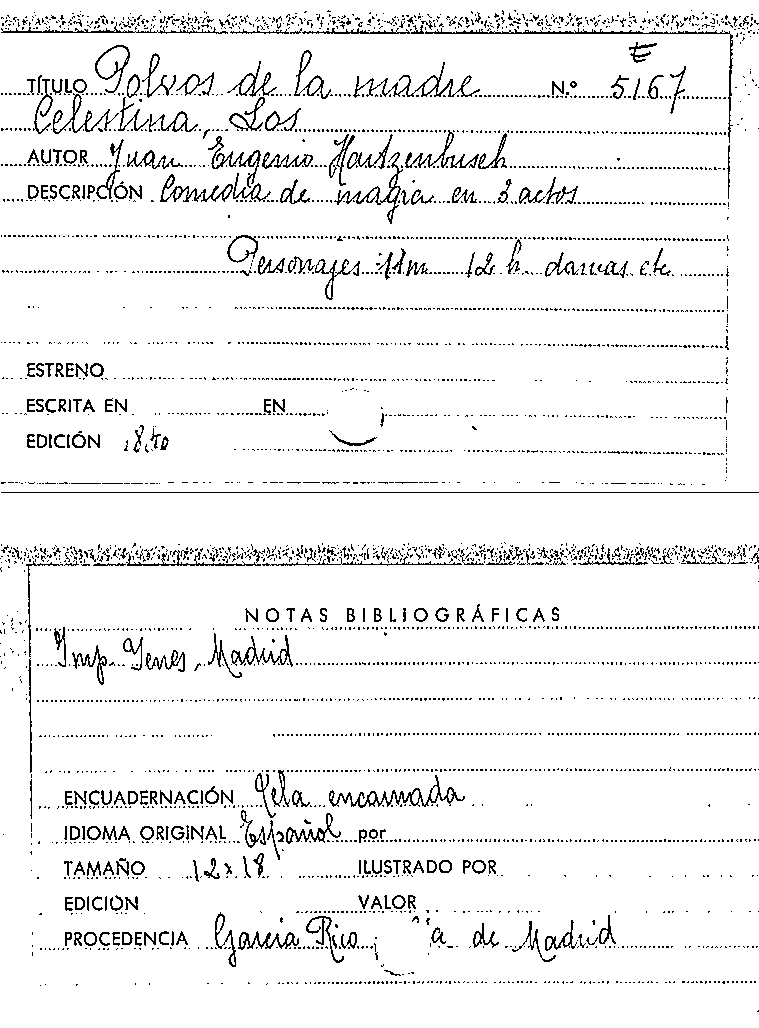 €
TÍTULO Polvos de la madre N.º 5167
Celestina, Los
AUTOR Juan Eugenio Hartzenbusch
DESCRIPCIÓN Comedia de magia en 3 actos
Personajes: 11 m 12 h. damas etc
ESTRENO
ESCRITA EN EN
EDICIÓN 1850
NOTAS BIBLIOGRÁFICAS
Imp. Yenes, Madrid
ENCUADERNACIÓN Tela encarnada
IDIOMA ORIGINAL Español por
TAMAÑO 12 x 18 ILUSTRADO POR
EDICIÓN VALOR
PROCEDENCIA García Rico de Madrid